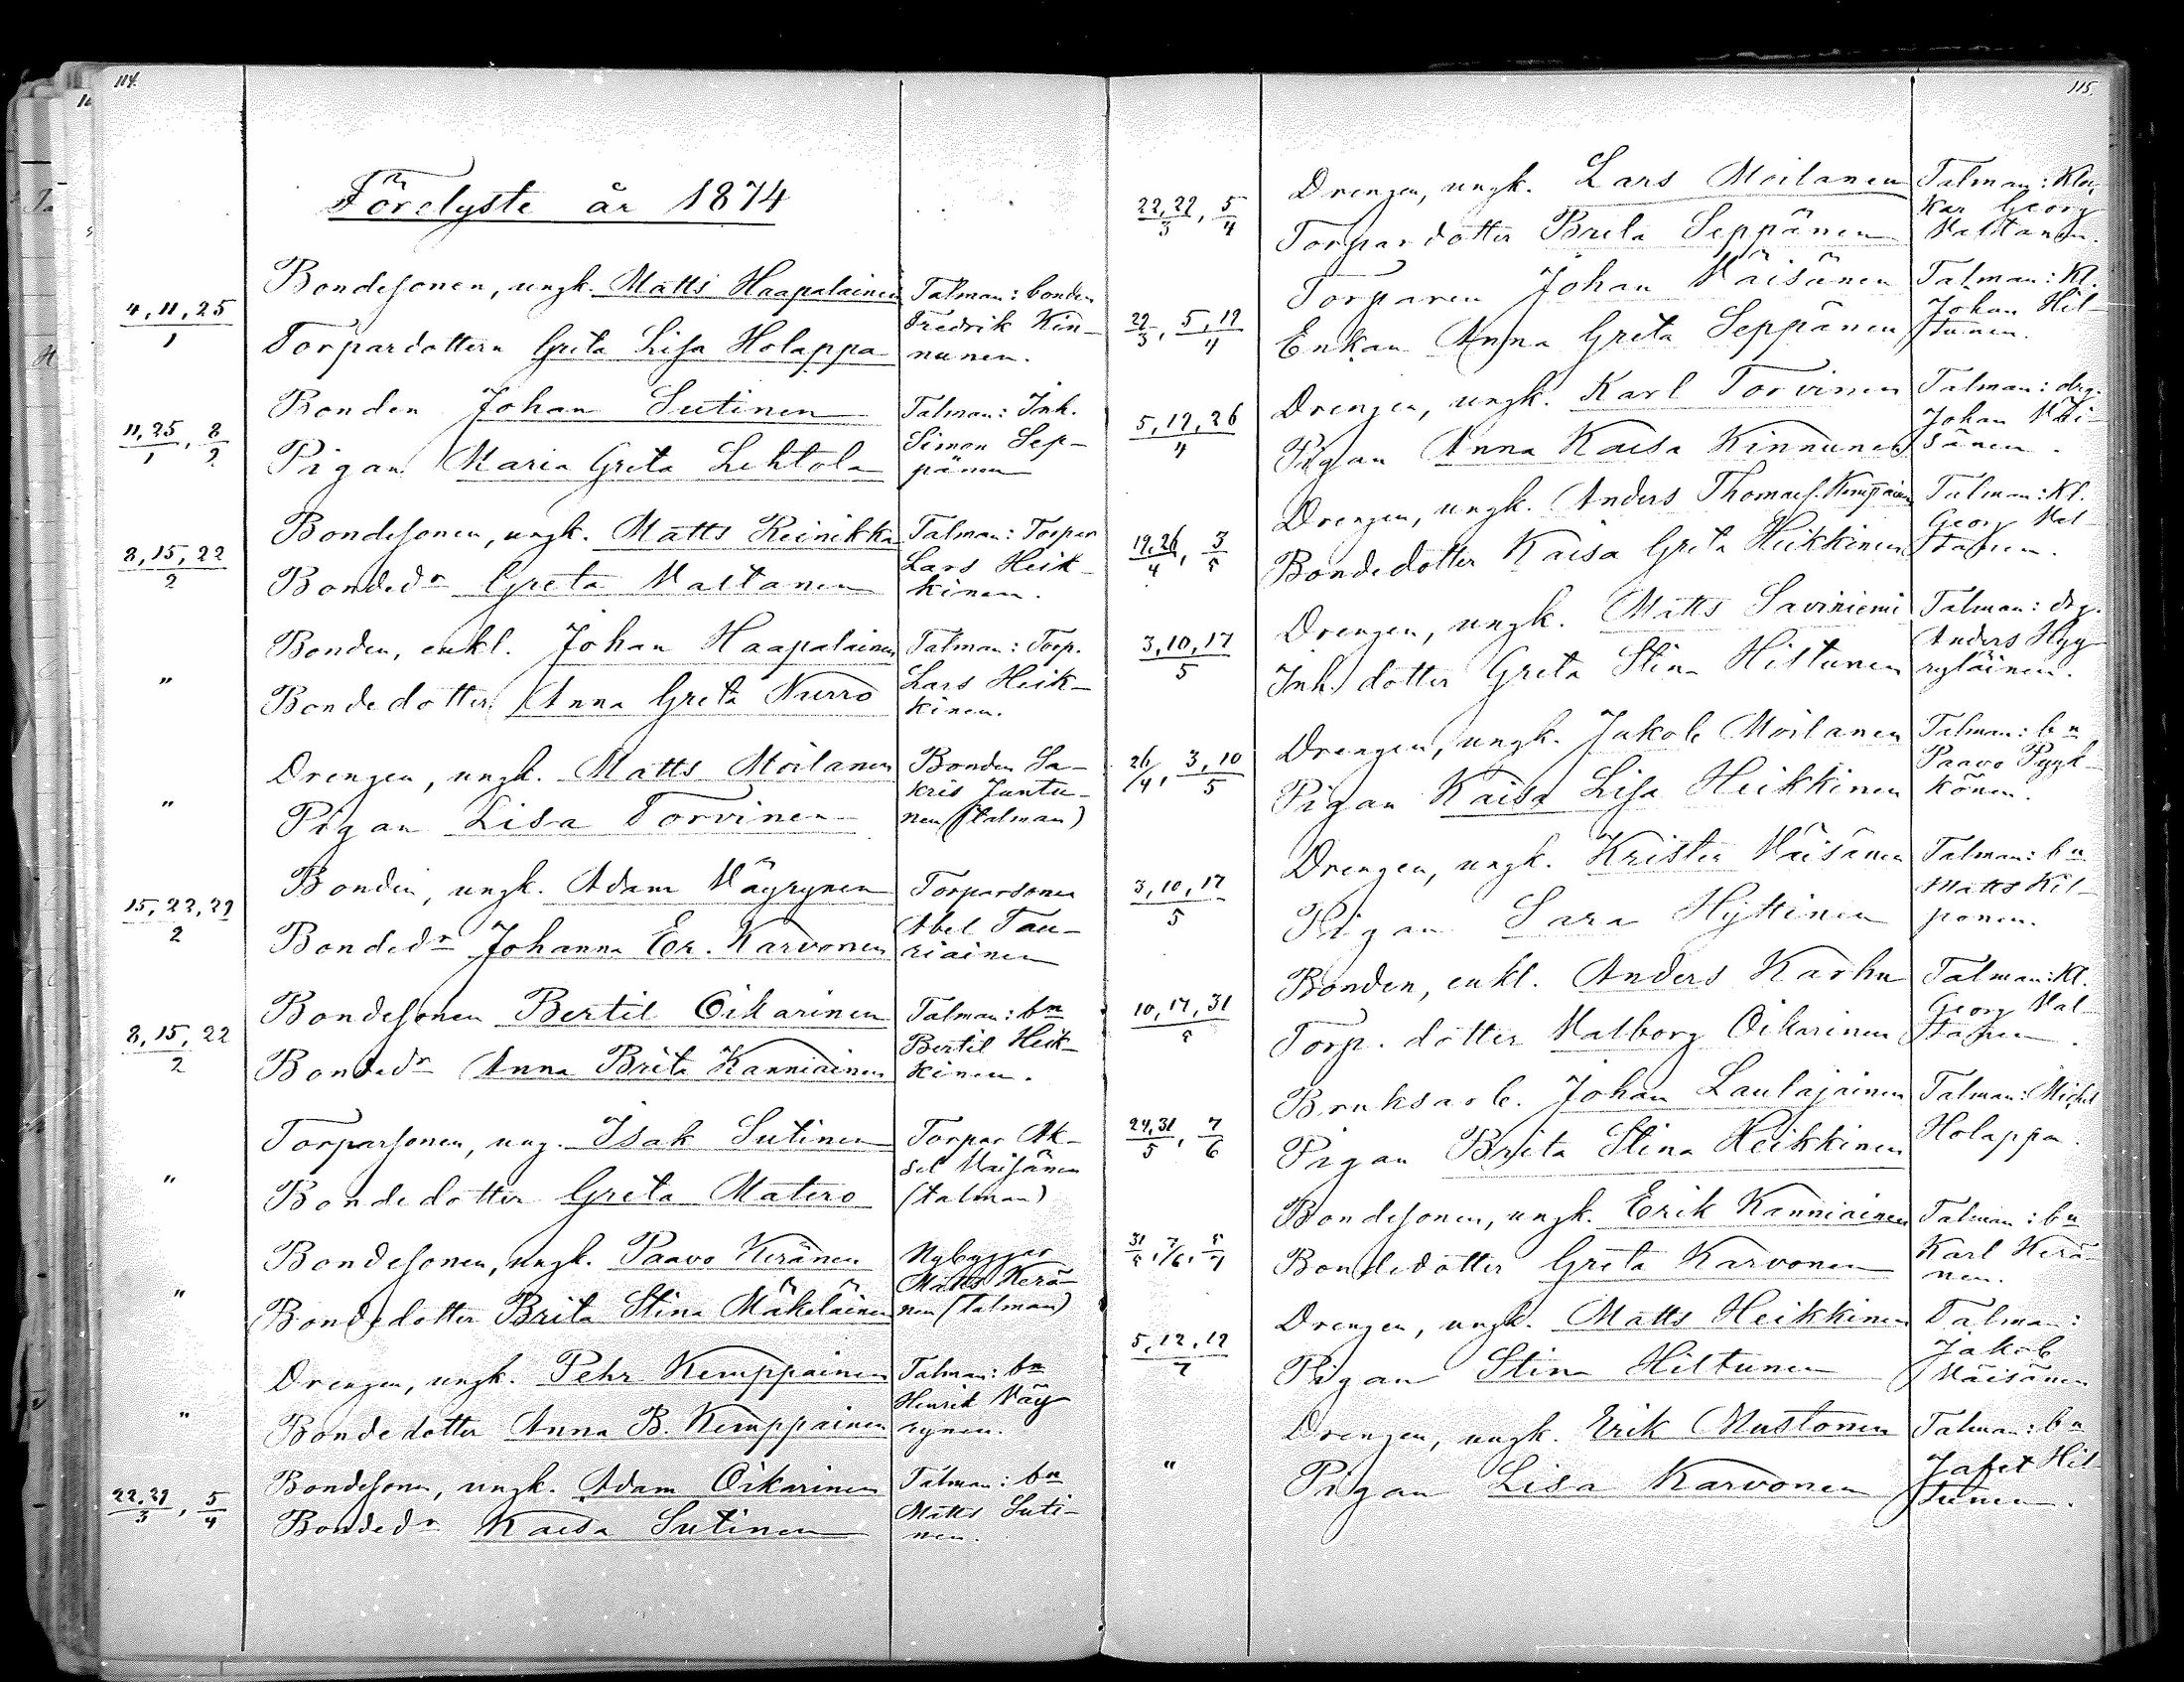 114.
Förelyste år 1874
4, 11, 25
1
Bondesonen, ungk. Matts Haapalainen
Torpardottern Greta Lisa Holappa
Talman: bonden
Fredrik Kin-
nunen.
11, 25, 8
1 2
Bonden Johan Sutinen
Pigan Maria Greta Lehtola
Talman: Inh.
Simon Sep-
pänen
8, 15, 22
2
Bondesonen, ungk. Matts Reinikka
Bondedr Greta Valtanen
Talman: Torpar
Lars Heik-
kinen.
"
Bonden, enkl. Johan Haapalainen
Bondedotter Anna Greta Nurro
Talman: Torp.
Lars Heik-
kinen.
"
Drengen, ungk. Matts Moilanen
Pigan Lisa Torvinen
Bonden Sa-
kris Juntu-
nen (talman)
15, 22, 29
2
Bonden, ungk. Adam Väyrynen
Bondedr Johanna Er. Karvonen
Torparsonen
Abel Tau-
riainen
8, 15, 22
2
Bondesonen Bertil Oikarinen
Bondedr Anna Brita Kanniainen
Talman: bn
Bertil Heik-
kinen.
"
Torparsonen, ung. Isak Sutinen
Bondedotter Greta Matero
Torpar Ak-
sel Väisänen
(talman)
"
Bondesonen, ungk. Paavo Keränen
Bondedotter Brita Stina Mäkeläinen
Nybyggar
Matts Kerä-
nen (talman)
"
Drengen, ungk. Pehr Kemppainen
Bondedotter Anna B. Kemppainen
Talman: bn
Henrik Väy-
rynen.
22, 29, 5
3 4
Bondesonen, ungk. Adam Oikarinen
Bondedr Kaisa Sutinen
Talman: bn
Matts Suti-
nen.
115.
22, 29, 5
3 4
Drengen, ungk. Lars Moilanen
Torpardotter Brita Seppänen
Talman: Kloc-
kar Georg
Valtanen.
29, 5, 19
3 4
Torparen Johan Väisänen
Enkan Anna Greta Seppänen
Talman: Kl.
Johan Hil-
tunen.
5, 19, 26
4
Drengen, ungk. Karl Torvinen
Pigan Anna Kaisa Kinnunen
Talman: drg.
Johan Väi-
sänen.
19, 26, 3
4 5
Drengen, ungk. Anders Thomass. Kemppainen
Bondedotter Kaisa Greta Heikkinen
Talman: Kl.
Georg Val-
tanen.
3, 10, 17
5
Drengen, ungk. Matts Saviniemi
Inh. dotter Greta Stina Hiltunen
Talman: drg.
Anders Hyy-
ryläinen.
26, 3, 10
4, 5
Drengen, ungk. Jakob Moilanen
Pigan Kaisa Lisa Heikkinen
Talman: bn
Paavo Pyyk-
könen.
3, 10, 17
5
Drengen, ungk. Krister Väisänen
Pigan Sara Hyttinen
Talman: bn
Matts Kil-
ponen.
10, 17, 31
5
Bonden, enkl. Anders Karhu
Torp. dotter Valborg Oikarinen
Talman: Kl.
Georg Val-
tanen.
24, 31, 7
5 6
Bruksarb. Johan Laulajainen
Pigan Brita Stina Heikkinen
Talman: Michel
Holappa.
31, 7, 5
5 6 7
Bondesonen, ungk. Erik Kanniainen
Bondedotter Greta Karvonen
Talman: bn
Karl Kerä-
nen.
5, 12, 19
7
Drengen, ungk. Matts Heikkinen
Pigan Stina Hiltunen
Talman:
Jakob
Väisänen
"
Drengen, ungk. Erik Mustonen
Pigan Lisa Karvonen
Talman: bn
Jafet Hil-
tunen.